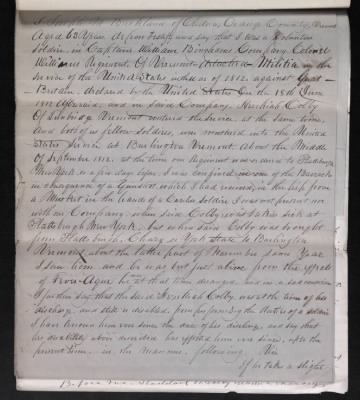 I Shepherd Bickland of Chelsea, Orange County, Vermont
Aged 63 years. Depose and say that I was a Volunteer
Soldier, in Captain William Binghams Company, Colonel
Williams Regiment, Of Vermont Militia in the
service of the United States in the war of 1812, against Great
Britain, declared by the United States on the 18th June
1812 Aforesaid, and in said Company, Hezekiah Colby
Of Tunbridge Vermont entered the service at the same time,
And both of us fellow soldiers, were mustered into the United
States Service at Burlington Vermont, About the Middle
Of September 1812, at the time our Regiment was moved to Plattsburgh
New York a few days after, I was confined in one of the Barracks
in consequence of a Gunshot which I had received, in the hip from
a Musket in the hands of a Careless Soldier, I was not present
with our Company, when said Colby was taken sick at
Plattsburgh New York, but when said Colby was brought
from Plattsburgh, Chazy in York State to Burlington
Vermont, about the latter part of November same Year
I saw him, and he was but just alive from the effects
of Fever Ague, he at that time deranged, and in a sad condition
I further say that the said Hezekiah Colby was at the time of his
discharge and still is disabled, from performing the duties of a soldier
I have known him ever since the date of his discharge, and say that
his disability above described has afflicted him ever since, up to the
present time, in the manner following Viz
If he take a slight